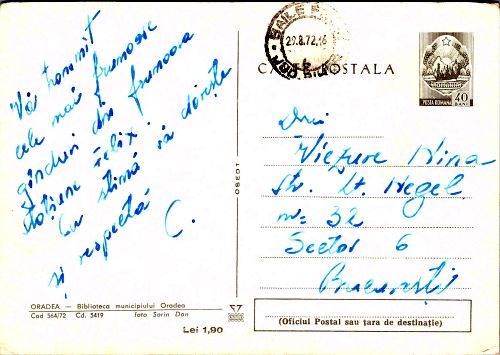 Vă transmit
cele mai frumoase
gînduri din frumoasa
stațiune Felix.
Cu stimă să dorește
și respectă
C.
ORADEA — Biblioteca municipiului Oradea
Cod 564/72 Cd. 5419 foto Sorin Dan
Lei 1,90
OSEDT
BĂILE
29.8.72.16
JUD. BIHOR
CARTE POSTALA
POSTA ROMANA
40
BANI
Dnei
Viezure Nina
Str. Lt. Negel
nr. 32
Sector 6
București
(Oficiul Postal sau țara de destinație)